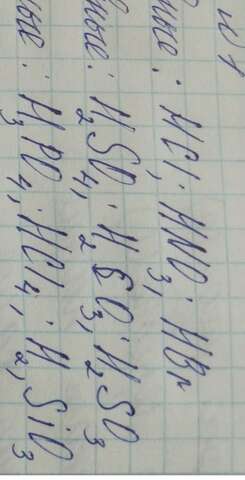 № 1
ные: HCl; HNO3; HBr
ные: H2SO4; H2CO3; H2SO3
ные: H3PO4; HCl4; H2SiO3